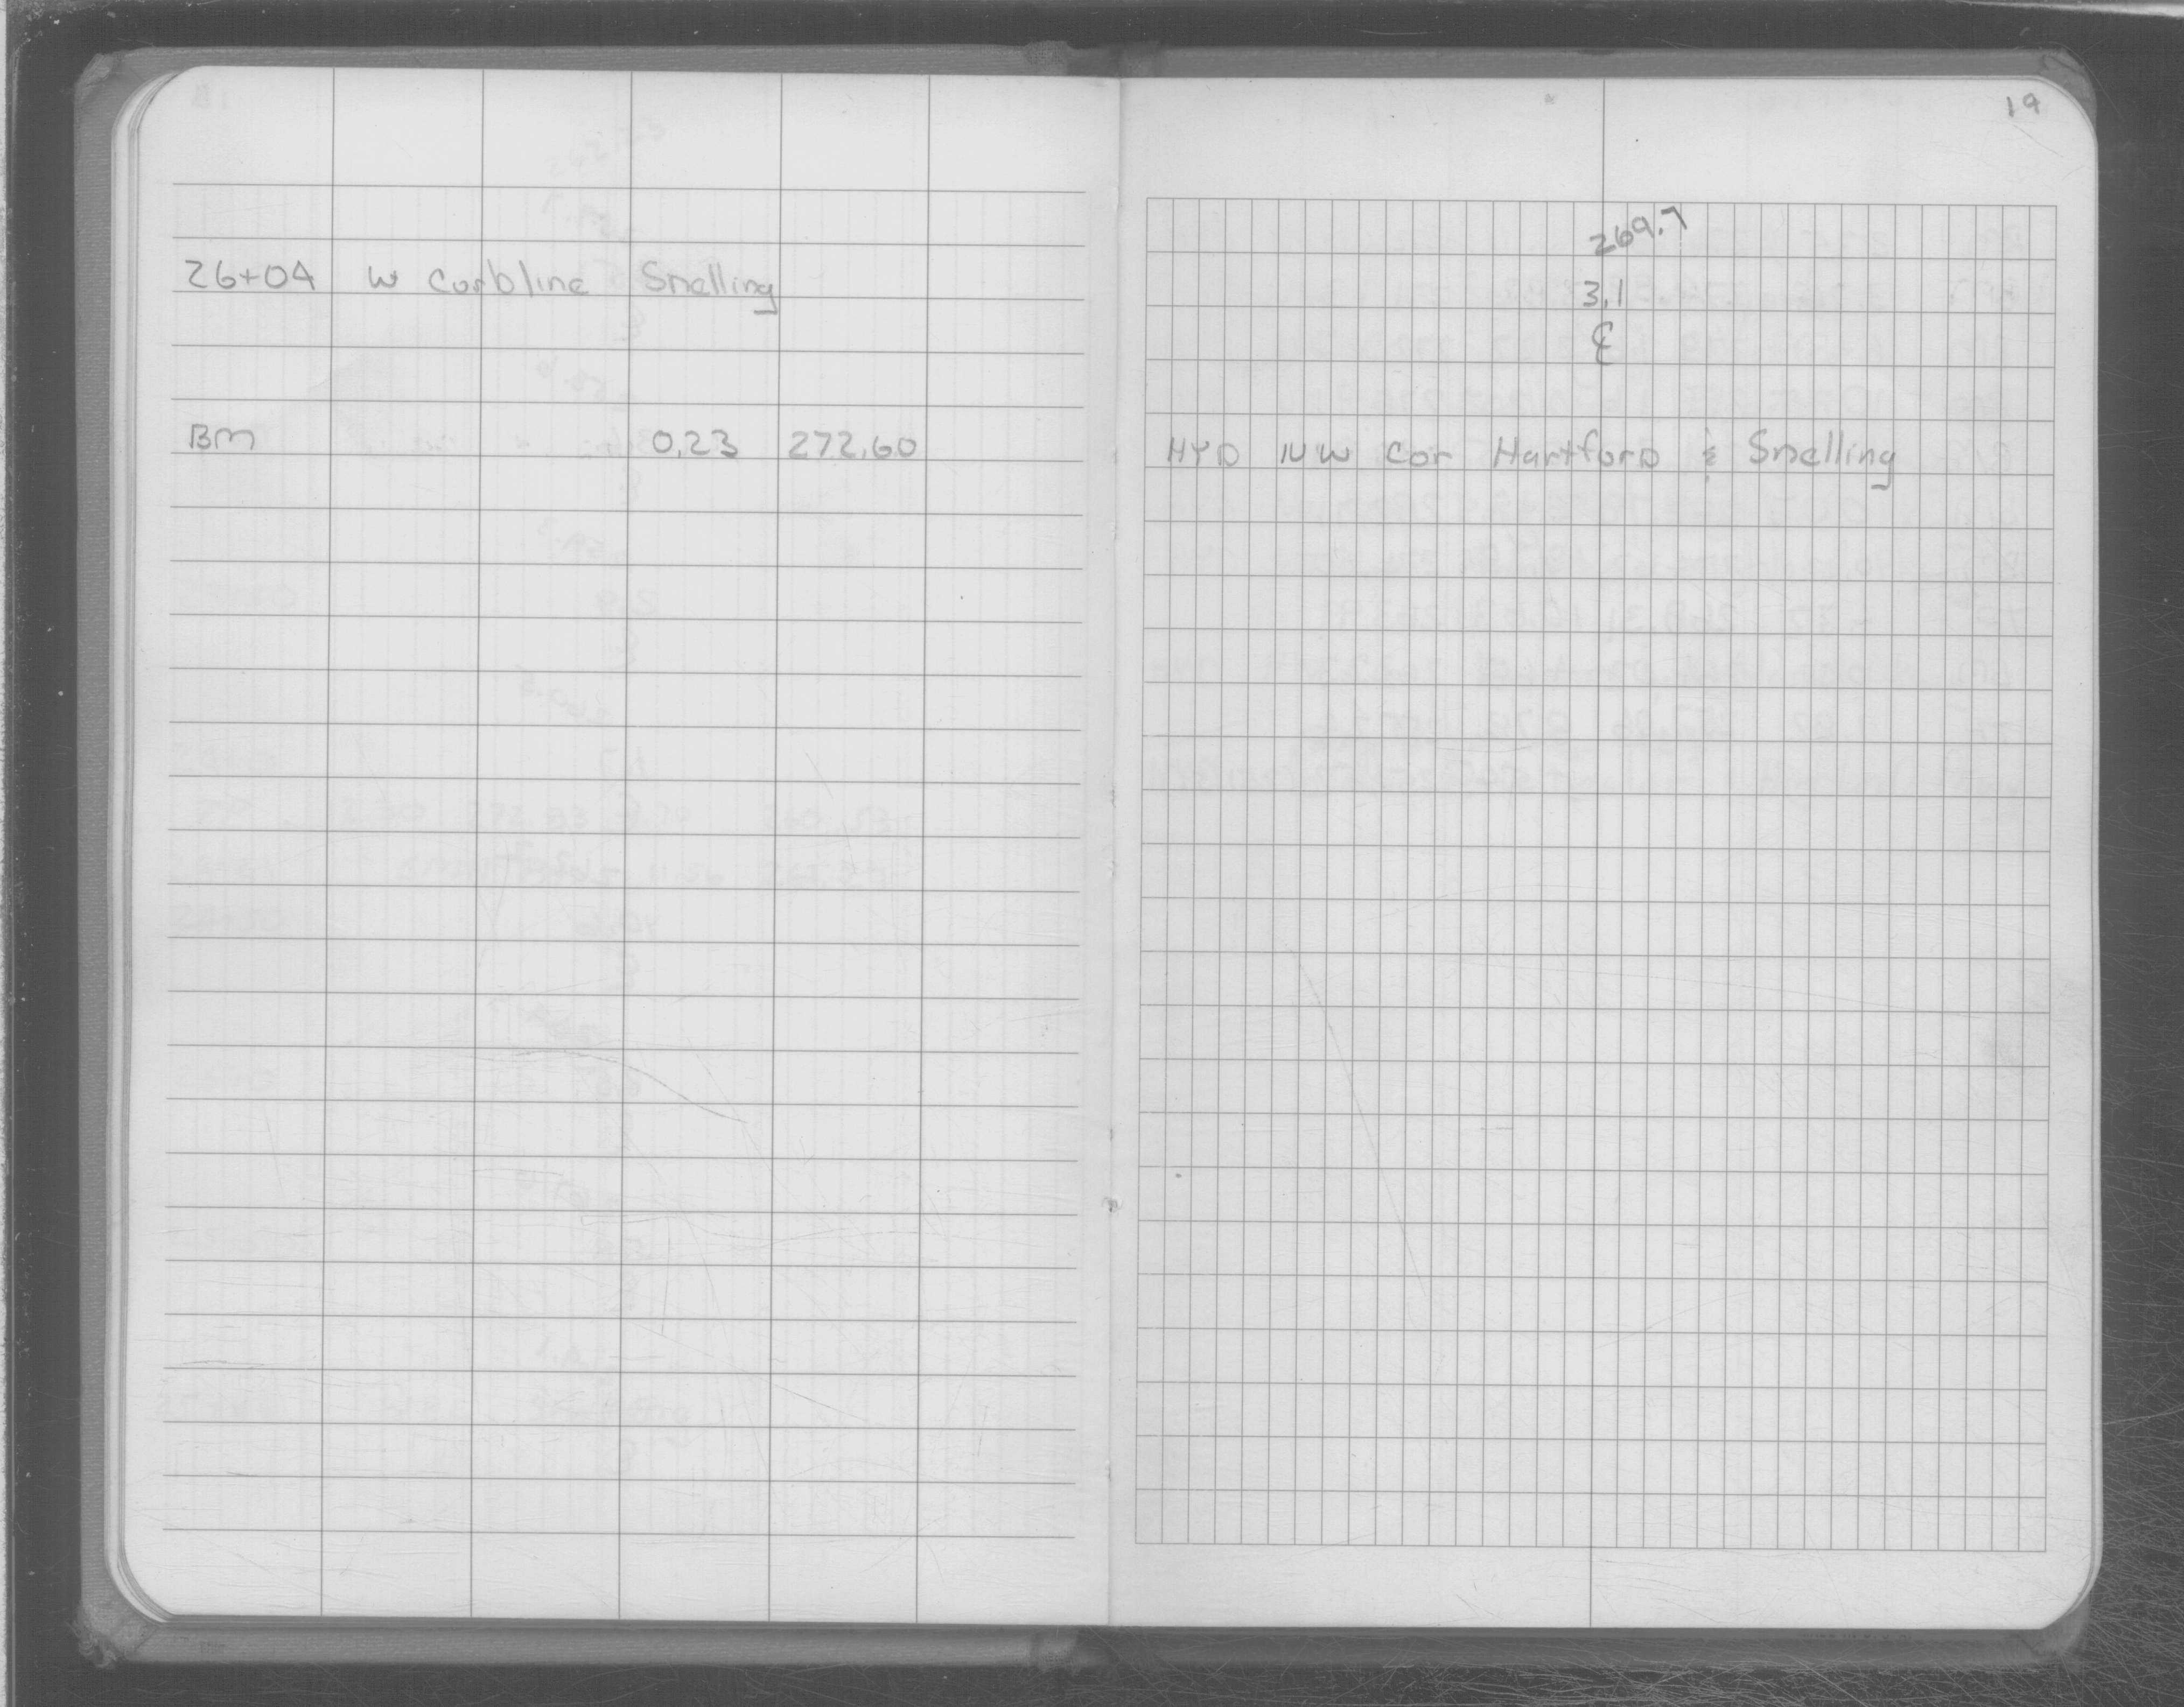 19
269.7
26+04 W Curbline Snelling 3.1
℄
BM 0.23 272.60 HYD NW Cor Hartford & Snelling